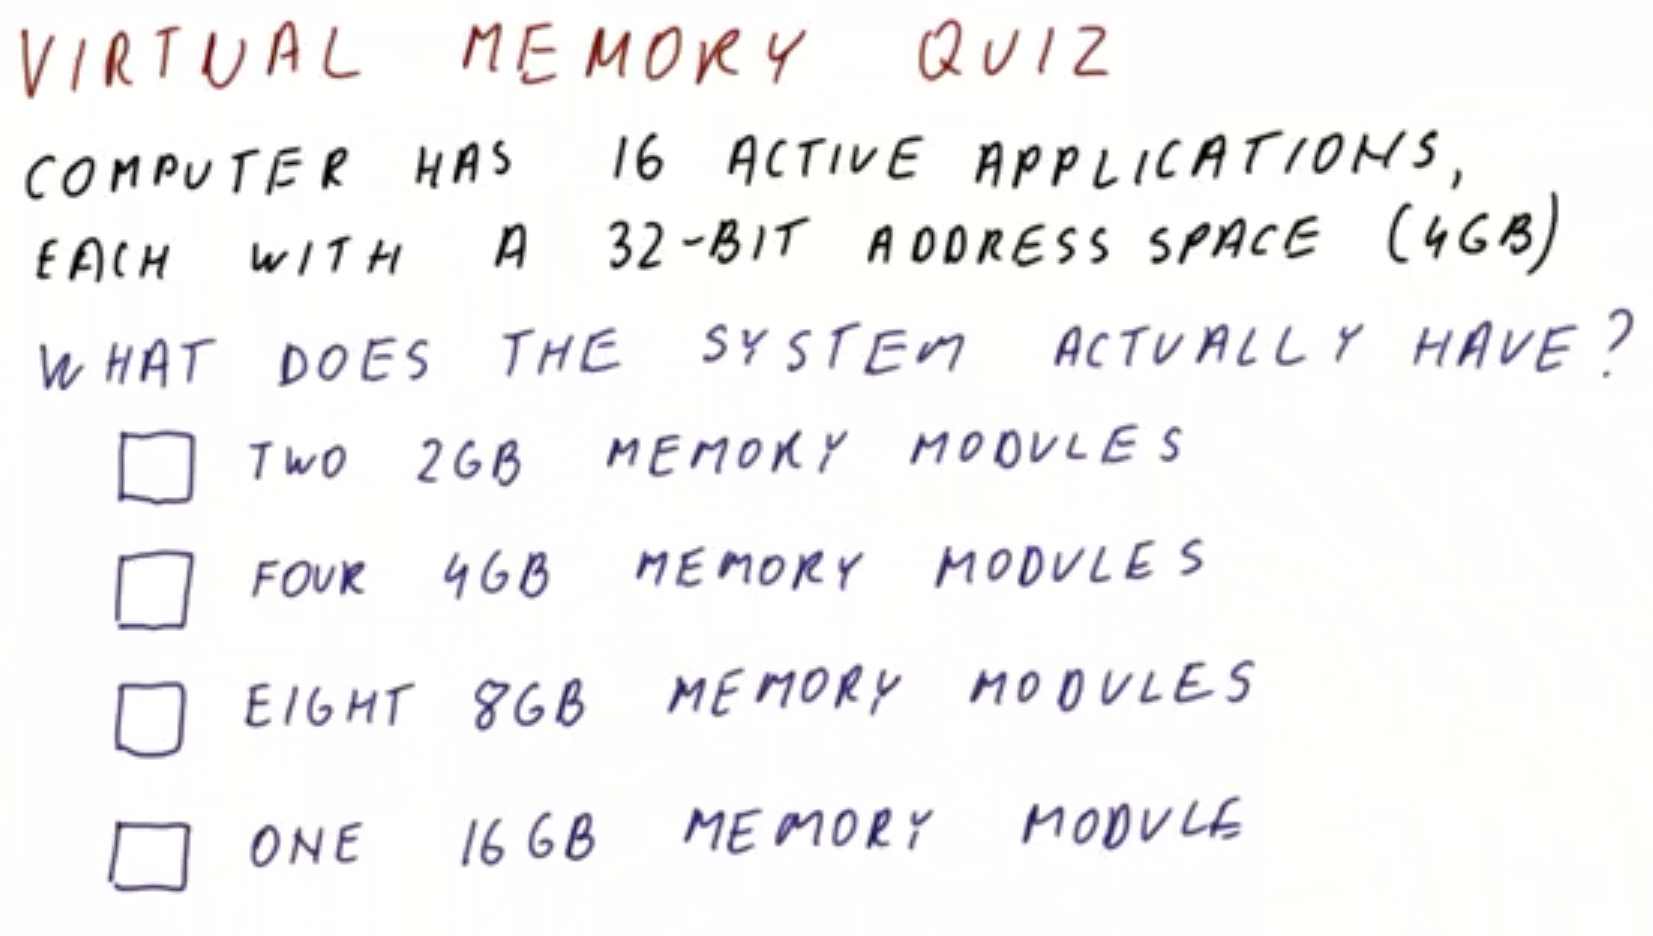 VIRTUAL MEMORY QUIZ
COMPUTER HAS 16 ACTIVE APPLICATIONS,
EACH WITH A 32-BIT ADDRESS SPACE (4GB)
WHAT DOES THE SYSTEM ACTUALLY HAVE?
TWO 2GB MEMORY MODULES
FOUR 4GB MEMORY MODULES
EIGHT 8GB MEMORY MODULES
ONE 16GB MEMORY MODULE